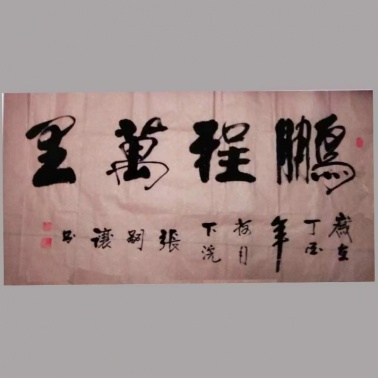 鵬程萬里
歲在丁酉年月下浣張嗣讓书